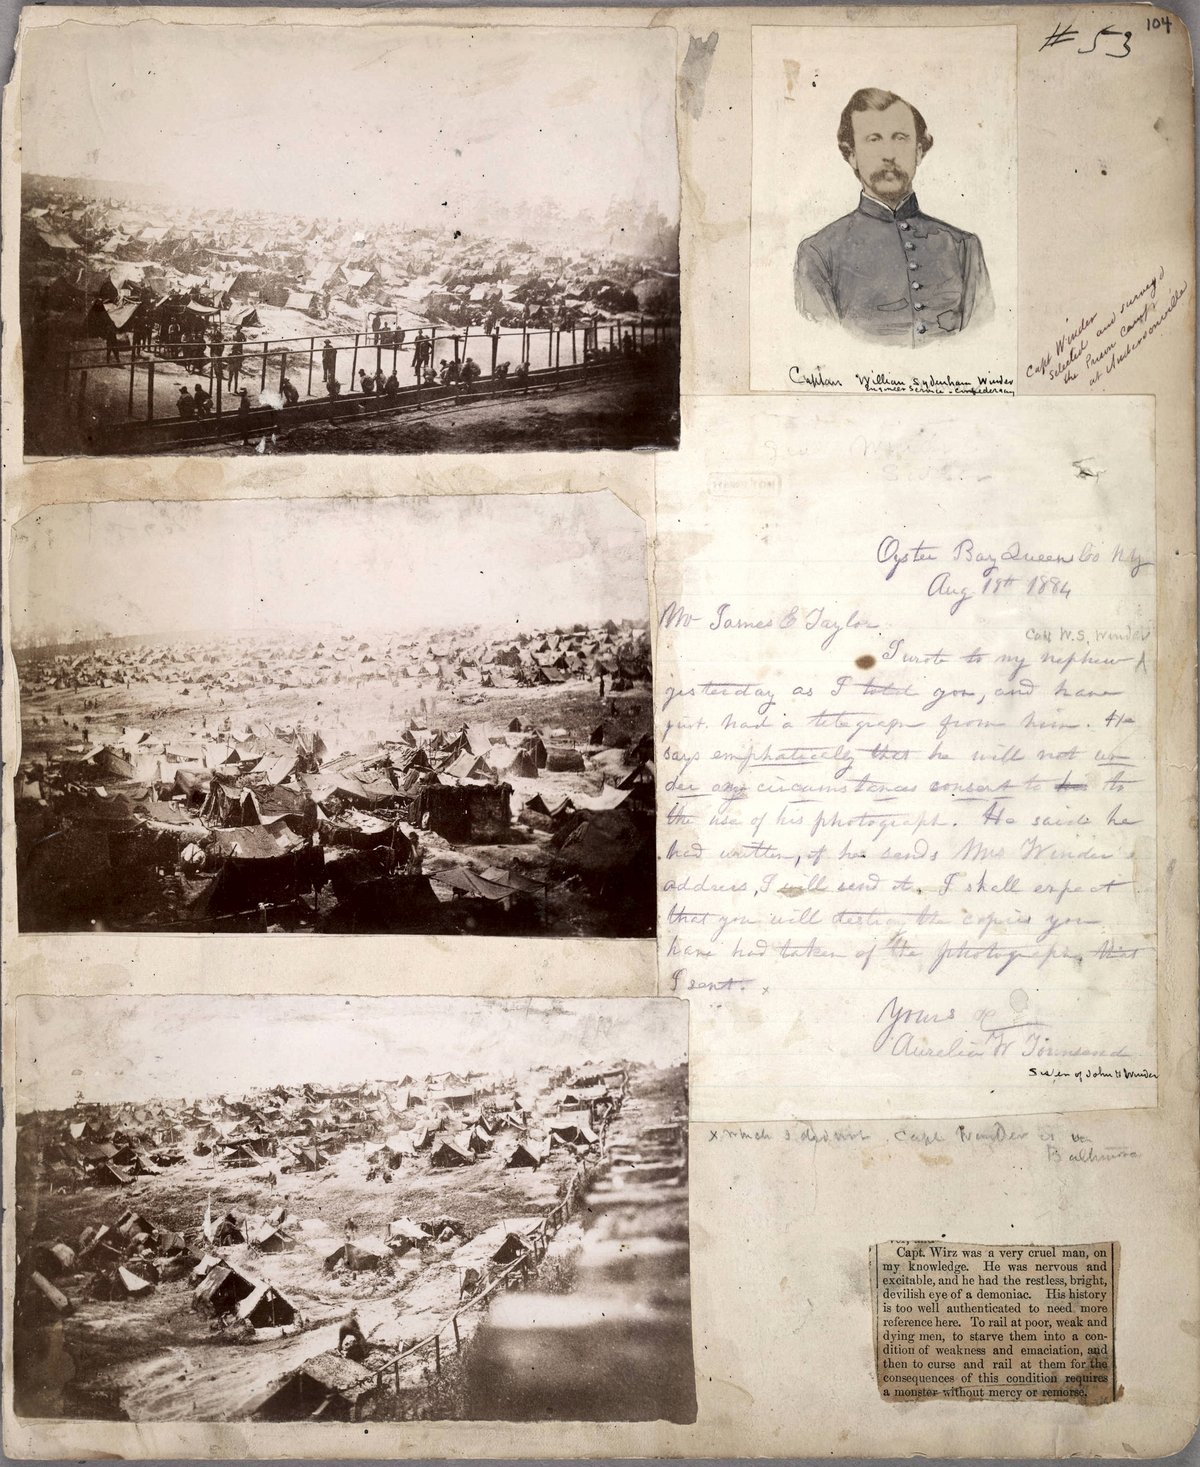 104
#53
Captain William Sydenham Winder
Engineer Service - Confederacy
Capt Winder
selected and surveyed
the Prison Camp
at Andersonville
Oyster Bay Queens Co N.Y
Aug 18th 1884
Mr James E Taylor
Capt W.S. Winder
I wrote to my nephew
yesterday as I told you, and have
just had a telegraph from him. He
says emphatically that he will not un-
der any circumstances consent to to
the use of his photograph. He said he
had written, if he sends Mrs Winder's
address, I will send it. I shall expect
that you will destroy the copies you
have had taken of the photograph, that
I sent. x
Yours
Aurelia W Townsend
Sister of John H Winder
x which I did not. Capt Winder is in
Baltimore
Capt. Wirz was a very cruel man, on
my knowledge. He was nervous and
excitable, and he had the restless, bright,
devilish eye of a demoniac. His history
is too well authenticated to need more
reference here. To rail at poor, weak and
dying men, to starve them into a con-
dition of weakness and emaciation, and
then to curse and rail at them for the
consequences of this condition requires
a monster without mercy or remorse.